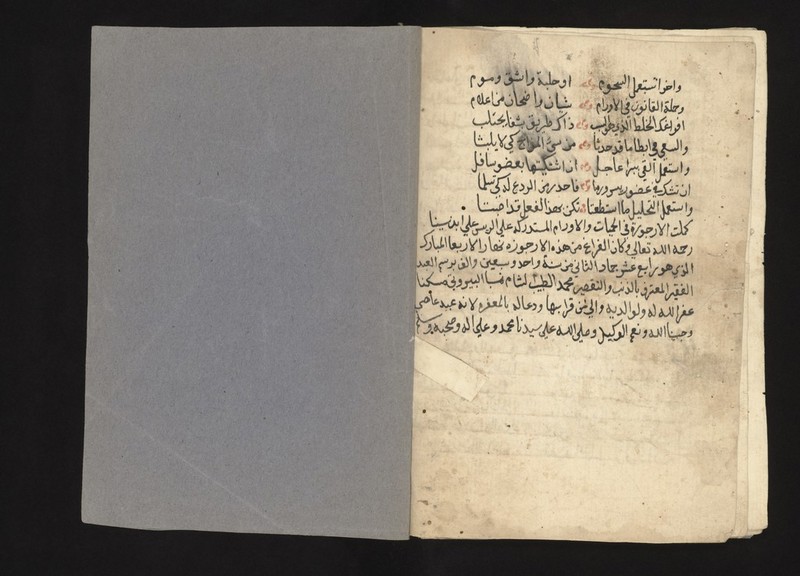 واخر استعمل السحوم او حلبة واشق وسوم
وجملة القانون في الاورام شيان واضحان من اعلام
افراغك الخلط الذي طلب وذاك طريق بثفا يجتلب
والسعي في ابطا ما قد حدثا من سوء المزاج كي لا يلبثا
واستعمل القي سراعاجل ان اشتكيتها بعضو سافل
ان تشتكي عضو فاحذر من الردع له كي تسلما
واستعمل التحليل ما استطعتا تكن بهذا الفعل قد اصبتا
كملت الارجوزة في الحميات والاورام المستدركه علي الريس علي ابن سينا
رحمه الله تعالي وكان الفراغ من هذه الارجوزه نهار الاربعا المبارك
الذي هو رابع عشر جماد الثاني من سنة واحد وسبعين والف برسم العبد
الفقير المعترف بالذنب والتقصير محمد الطبيب نسبا البيروتي مسكنا
غفر الله له ولوالديه والي من قرا بها ودعا له بالمغفره لانه عبد عاصي
وحسبنا الله ونعم الوكيل وصلي الله علي سيدنا محمد وعلي اله وصحبه وسلم